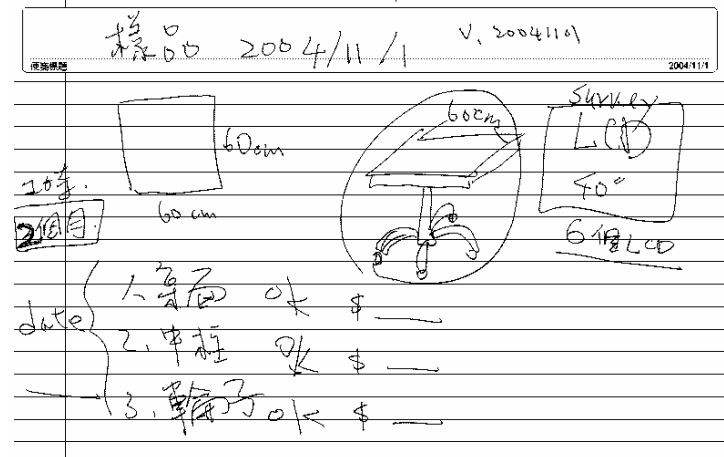 樣品 2004/11/1
V. 20041101
便箋標題
2004/11/1
60cm
60cm
2個月.
60cm
Survey
LCD
40"
6個LCD
date
1. 桌面 ok $ __
2. 中柱 ok $ __
3. 輪子 ok $ __